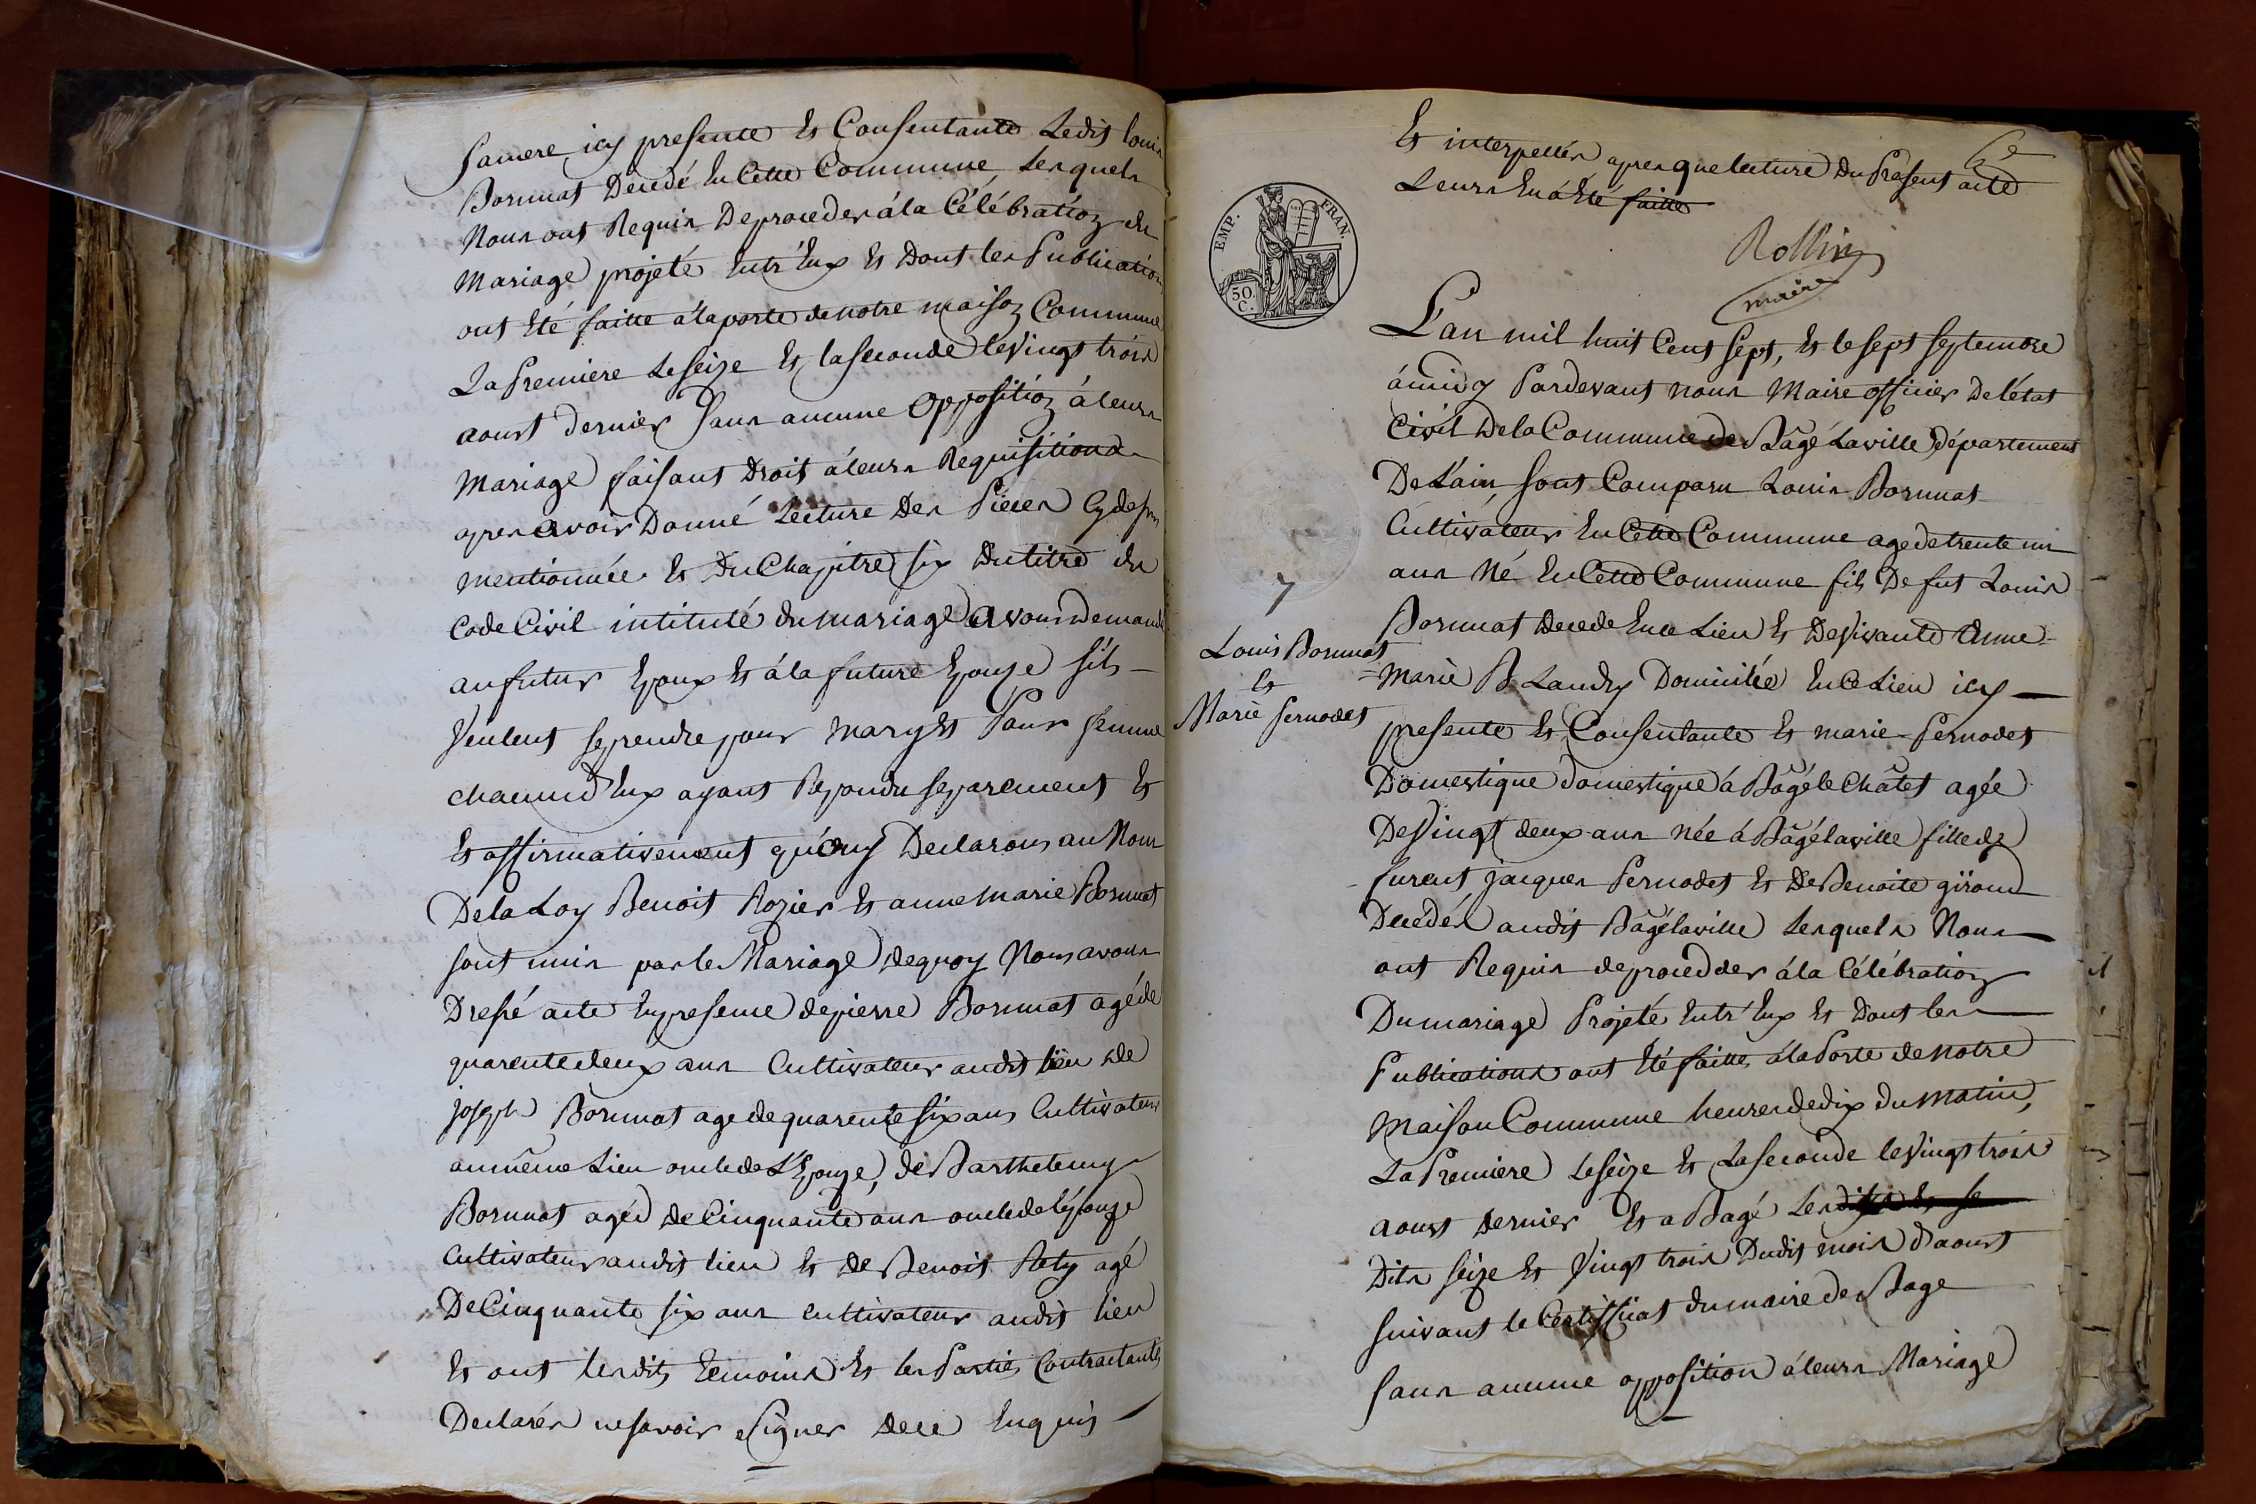 Samere icy presente et Consentante Ledit louis
Bornuat Decedé En Cette Commune, Lesquels
Nous ont Requis De proceder á la Célébration du
Mariage projeté Entr'Eux et Dont les Publications
ont Eté faitte á la porte de notre maison Commune
La Premiere Le seize et la seconde le Vingt trois
aoust dernier sans aucune Opposition á leurs
Mariage faisant Droit á leurs Requisitions
apres avoir Donné Lecture Des Pieces Cy dessus
mentionnée et Du Chapitre six Du titre du
Code Civil intitulé du mariage avons Demandé
au futur Epoux et á la future Epouse s'ils
Veulent se prendre pour mary et Pour femme
chacun d'Eux ayant Repondu separement et
et affirmativement qu'ouy Declarons au Nom
De la Loy Benoit Rozier et anne Marie Bornuat
sont unis par le Mariage, de quoy Nous avons
Dressé acte En presence de pierre Bornuat agé de
quarente deux ans Cultivateur audit lieu de
joseph Bornuat age de quarente six ans Cultivateur
au même Lieu oncle de L'Epouze, de Barthelemy
Bornuat agé de Cinquante ans oncle de l'épouze
Cultivateur audit lieu et De Benoit Rety agé
De Cinquante six ans cultivateur audit lieu
Et ont lesdits Temoins et les Partie Contractants
Declarés ne savoir Signer De ce Enquis
Et interpellés apres que lecture Du Présent acte
Leurs En á Eté faitte
Rollin
maire
EMP. FRAN.
50.
C.
L'an mil huit Cent sept, et le sept septembre
á midy Pardevant nous Maire officier De l'état
Civil De la Commune de Bâgé Laville Département
De L'ain, sont Comparu Louis Bornuat
Cultivateur En Cette Commune age de trente un
ans Né En Cette Commune fils De fut Louis
Bornuat Decede En ce Lieu et De Vivante Anne
Marie B Landry Domicilée En ce Lieu icy
presente et Consentante et marie Pernodet
Domestique domestique á Bâgé le Châtel agée
De Vingt deux ans née á Bâgé laville fille de
furent jacques Pernodet et De Benoite giroud
Decedés audit Bâgé laville Lesquels Nous
ont Requis de procedder á la Célébration
Du mariage Projeté Entr'Eux et Dont les
Publications ont Eté faitte á la Porte de notre
Maison Commune heures de dix du matin,
La Premiere Le seize et La seconde le Vingt trois
aoust dernier et a Bagé Les
Dits seize et Vingt trois Dudit mois d'aoust
suivant le Certifficat du maire de Bage
sans aucune opposition á leurs Mariage
7
Louis Bornuat
Et
Marie Pernodet